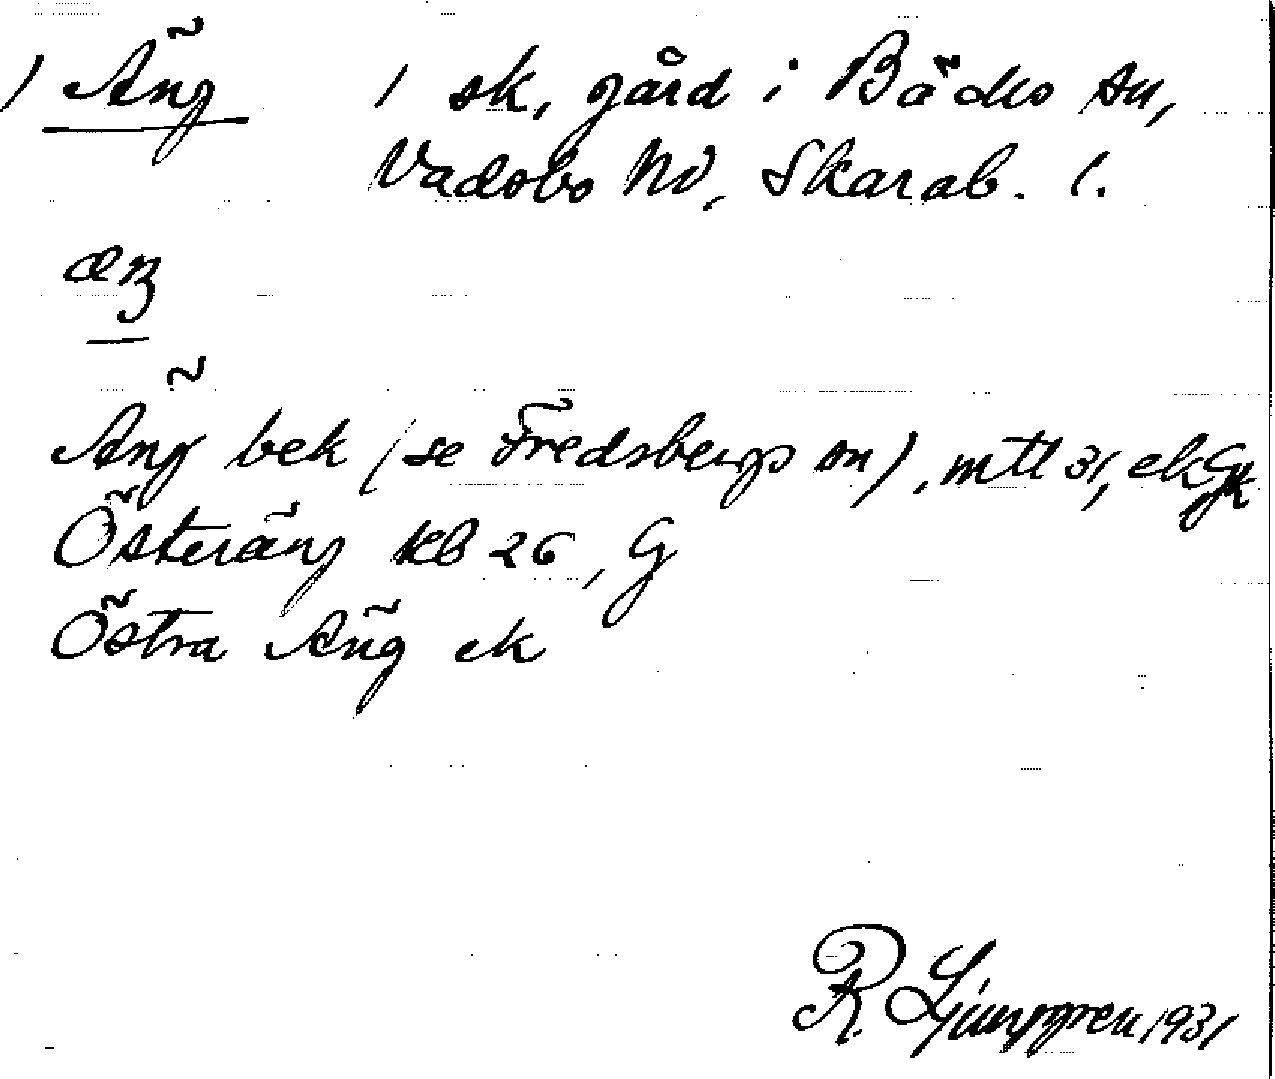 1 Äng 1 sk, gård i Bäcks sn,
Vadsbo hd, Skarab. l.
æŋ
Äng bek (se Fredsbergs sn), mtl 31, ek Gk
Österäng kb 26, G
Östra Äng ek
R. Ljunggren 1931